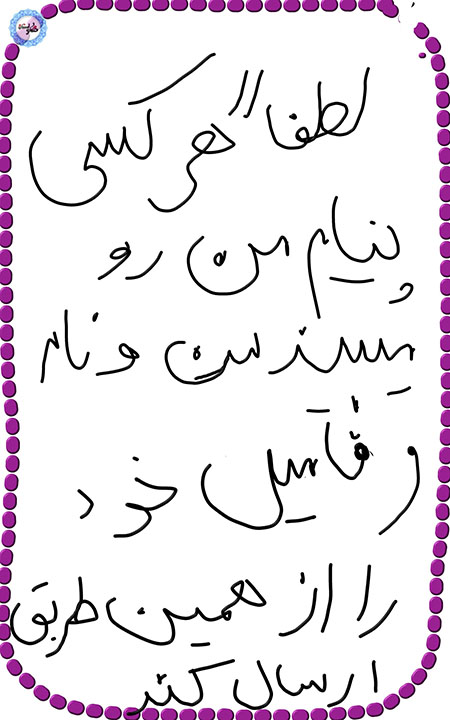 لطفا" هر کسی
پیام من رو
میبینند من و نام
و فامیل خود
را از همین طریق
ارسال کنید